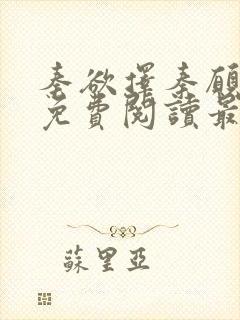 秦欲擇秦願
免費閱讀最
蘇里亞